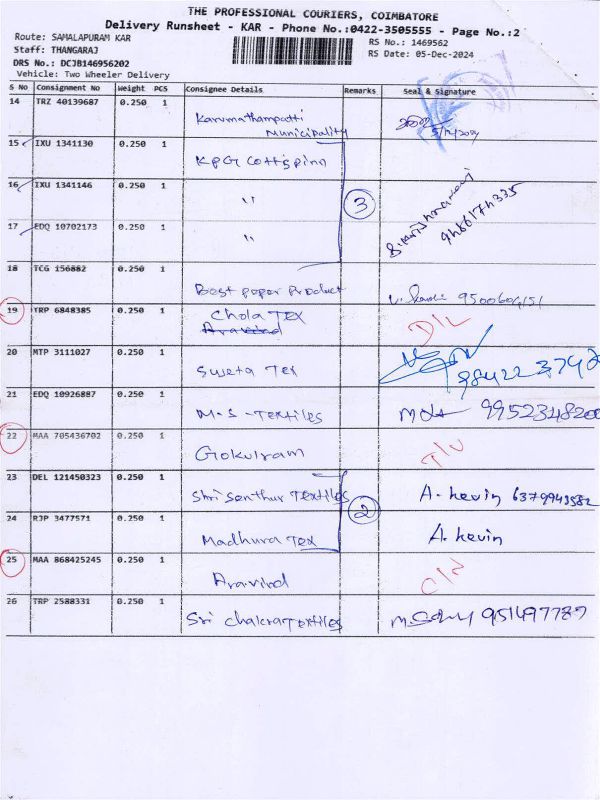 THE PROFESSIONAL COURIERS, COIMBATORE
Delivery Runsheet - KAR - Phone No.:0422-3505555 - Page No.:2
Route: SAMALAPURAM KAR
RS No.: 1469562
Staff: THANGARAJ
RS Date: 05-Dec-2024
DRS No.: DCJB146956202
Vehicle: Two Wheeler Delivery
S No Consignment No Weight PCS Consignee Details Remarks Seal & Signature
14 TRZ 40139687 0.250 1 Karumathampatti
Municipality
15 IXU 1341130 0.250 1 KPG Cottspinn
16 IXU 1341146 0.250 1 "
3
17 EDQ 10702173 0.250 1 "
18 TCG 156882 0.250 1 Best paper Product
19 TRP 6848385 0.250 1 Chola Tex D/L
Aravind
20 MTP 3111027 0.250 1 Sweta Tex
21 EDQ 10926887 0.250 1 M-S-Textiles 9952348200
22 MAA 705436702 0.250 1 Gokulram
23 DEL 121450323 0.250 1 Shri Senthur Textiles A. Kevin 6379943582
2
24 RJP 3477571 0.250 1 Madhura Tex A. Kevin
25 MAA 868425245 0.250 1 Aravind
26 TRP 2588331 0.250 1 Sri Chakra Textiles 951497787